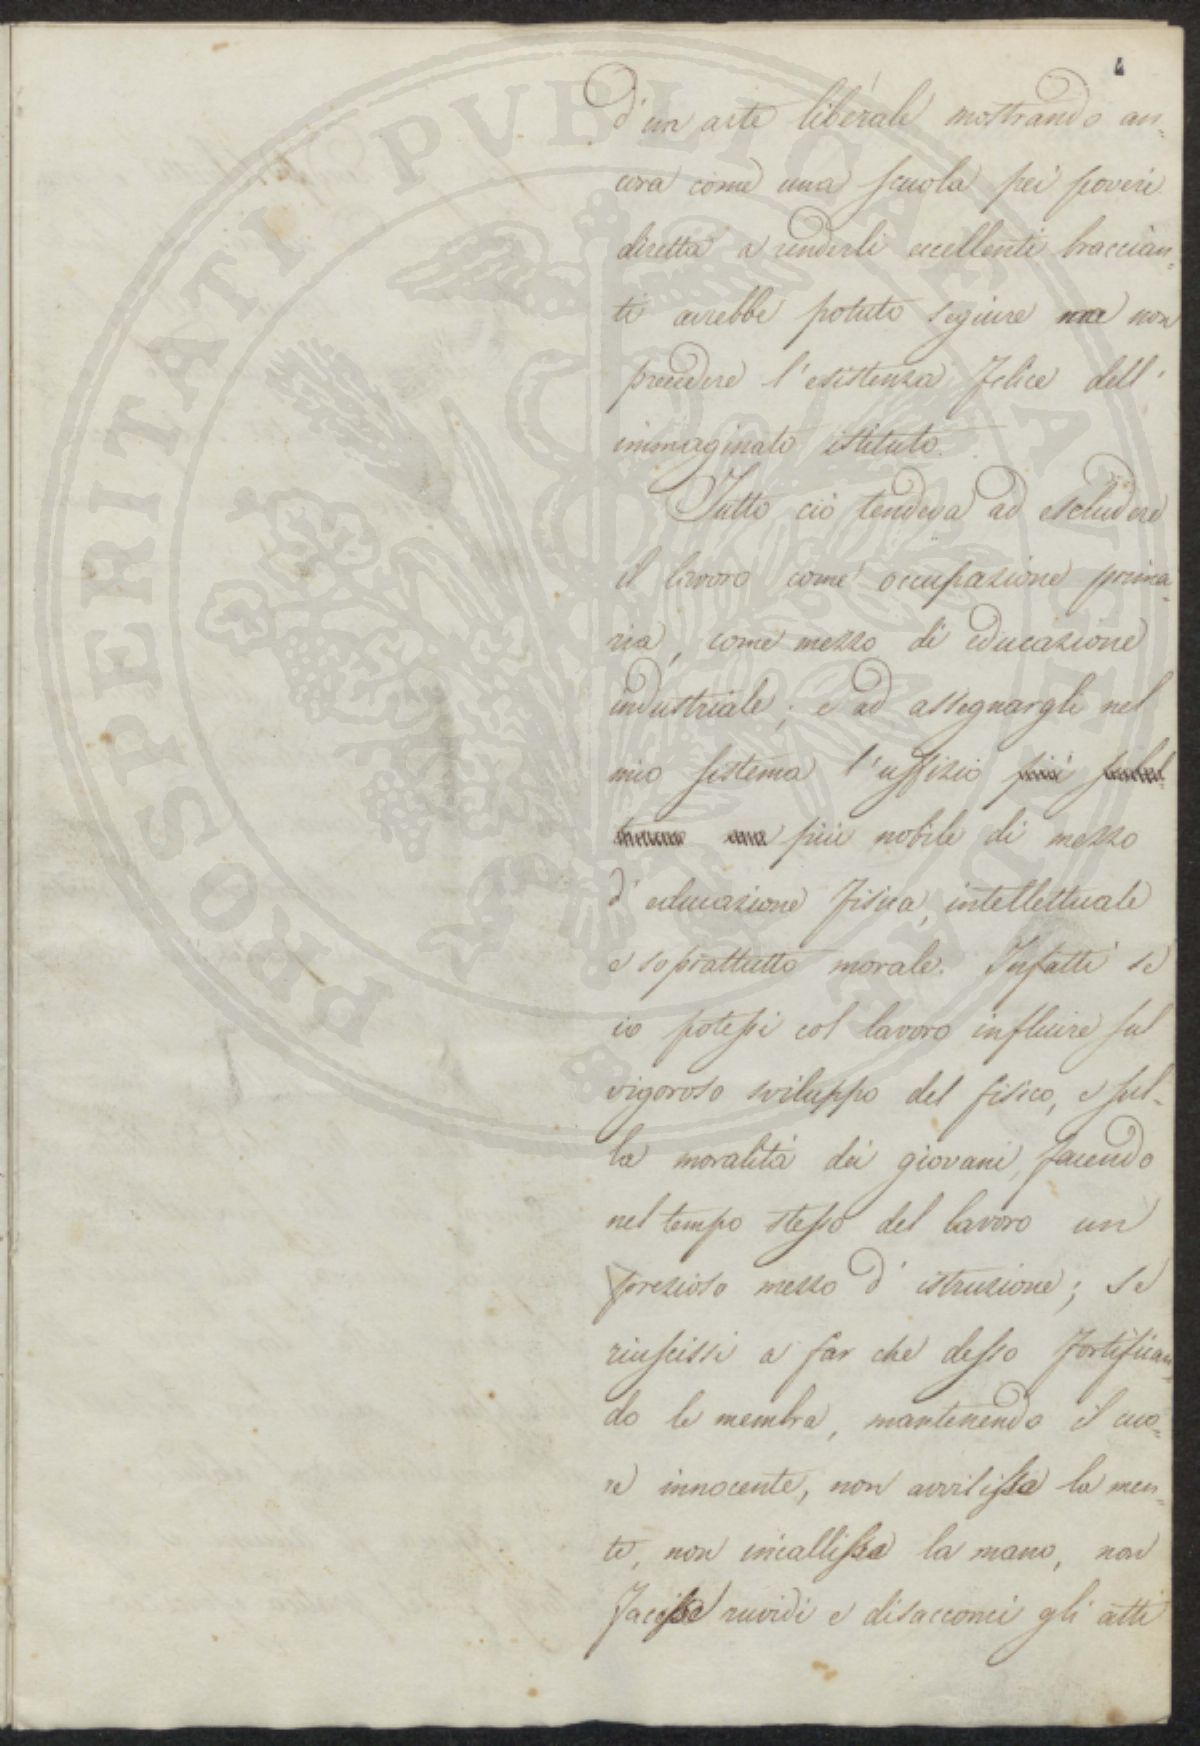 4
d'un arte liberale mostrando an-
cora come una scuola pei poveri
diretta a renderli eccellenti braccian-
ti avrebbe potuto seguire ma non
precedere l'esistenza felice dell'
immaginato istituto.
Tutto ciò tendeva ad escludere
il lavoro come occupazione prima-
ria, come mezzo di educazione
industriale; e ad assegnargli nel
mio sistema l'uffizio più subal-
terno ma più nobile di mezzo
d'educazione fisica, intellettuale
e soprattutto morale. Infatti se
io potessi col lavoro influire sul
vigoroso sviluppo del fisico, e sul-
la moralità dei giovani, facendo
nel tempo stesso del lavoro un
prezioso mezzo d'istruzione; se
riuscissi a far che desso fortifican-
do le membra, mantenendo il cuo-
re innocente, non avvilisse la men-
te, non incallisse la mano, non
facesse ruvidi e disacconci gli atti
PROSPERITATI PUBLICAE AUGENDAE